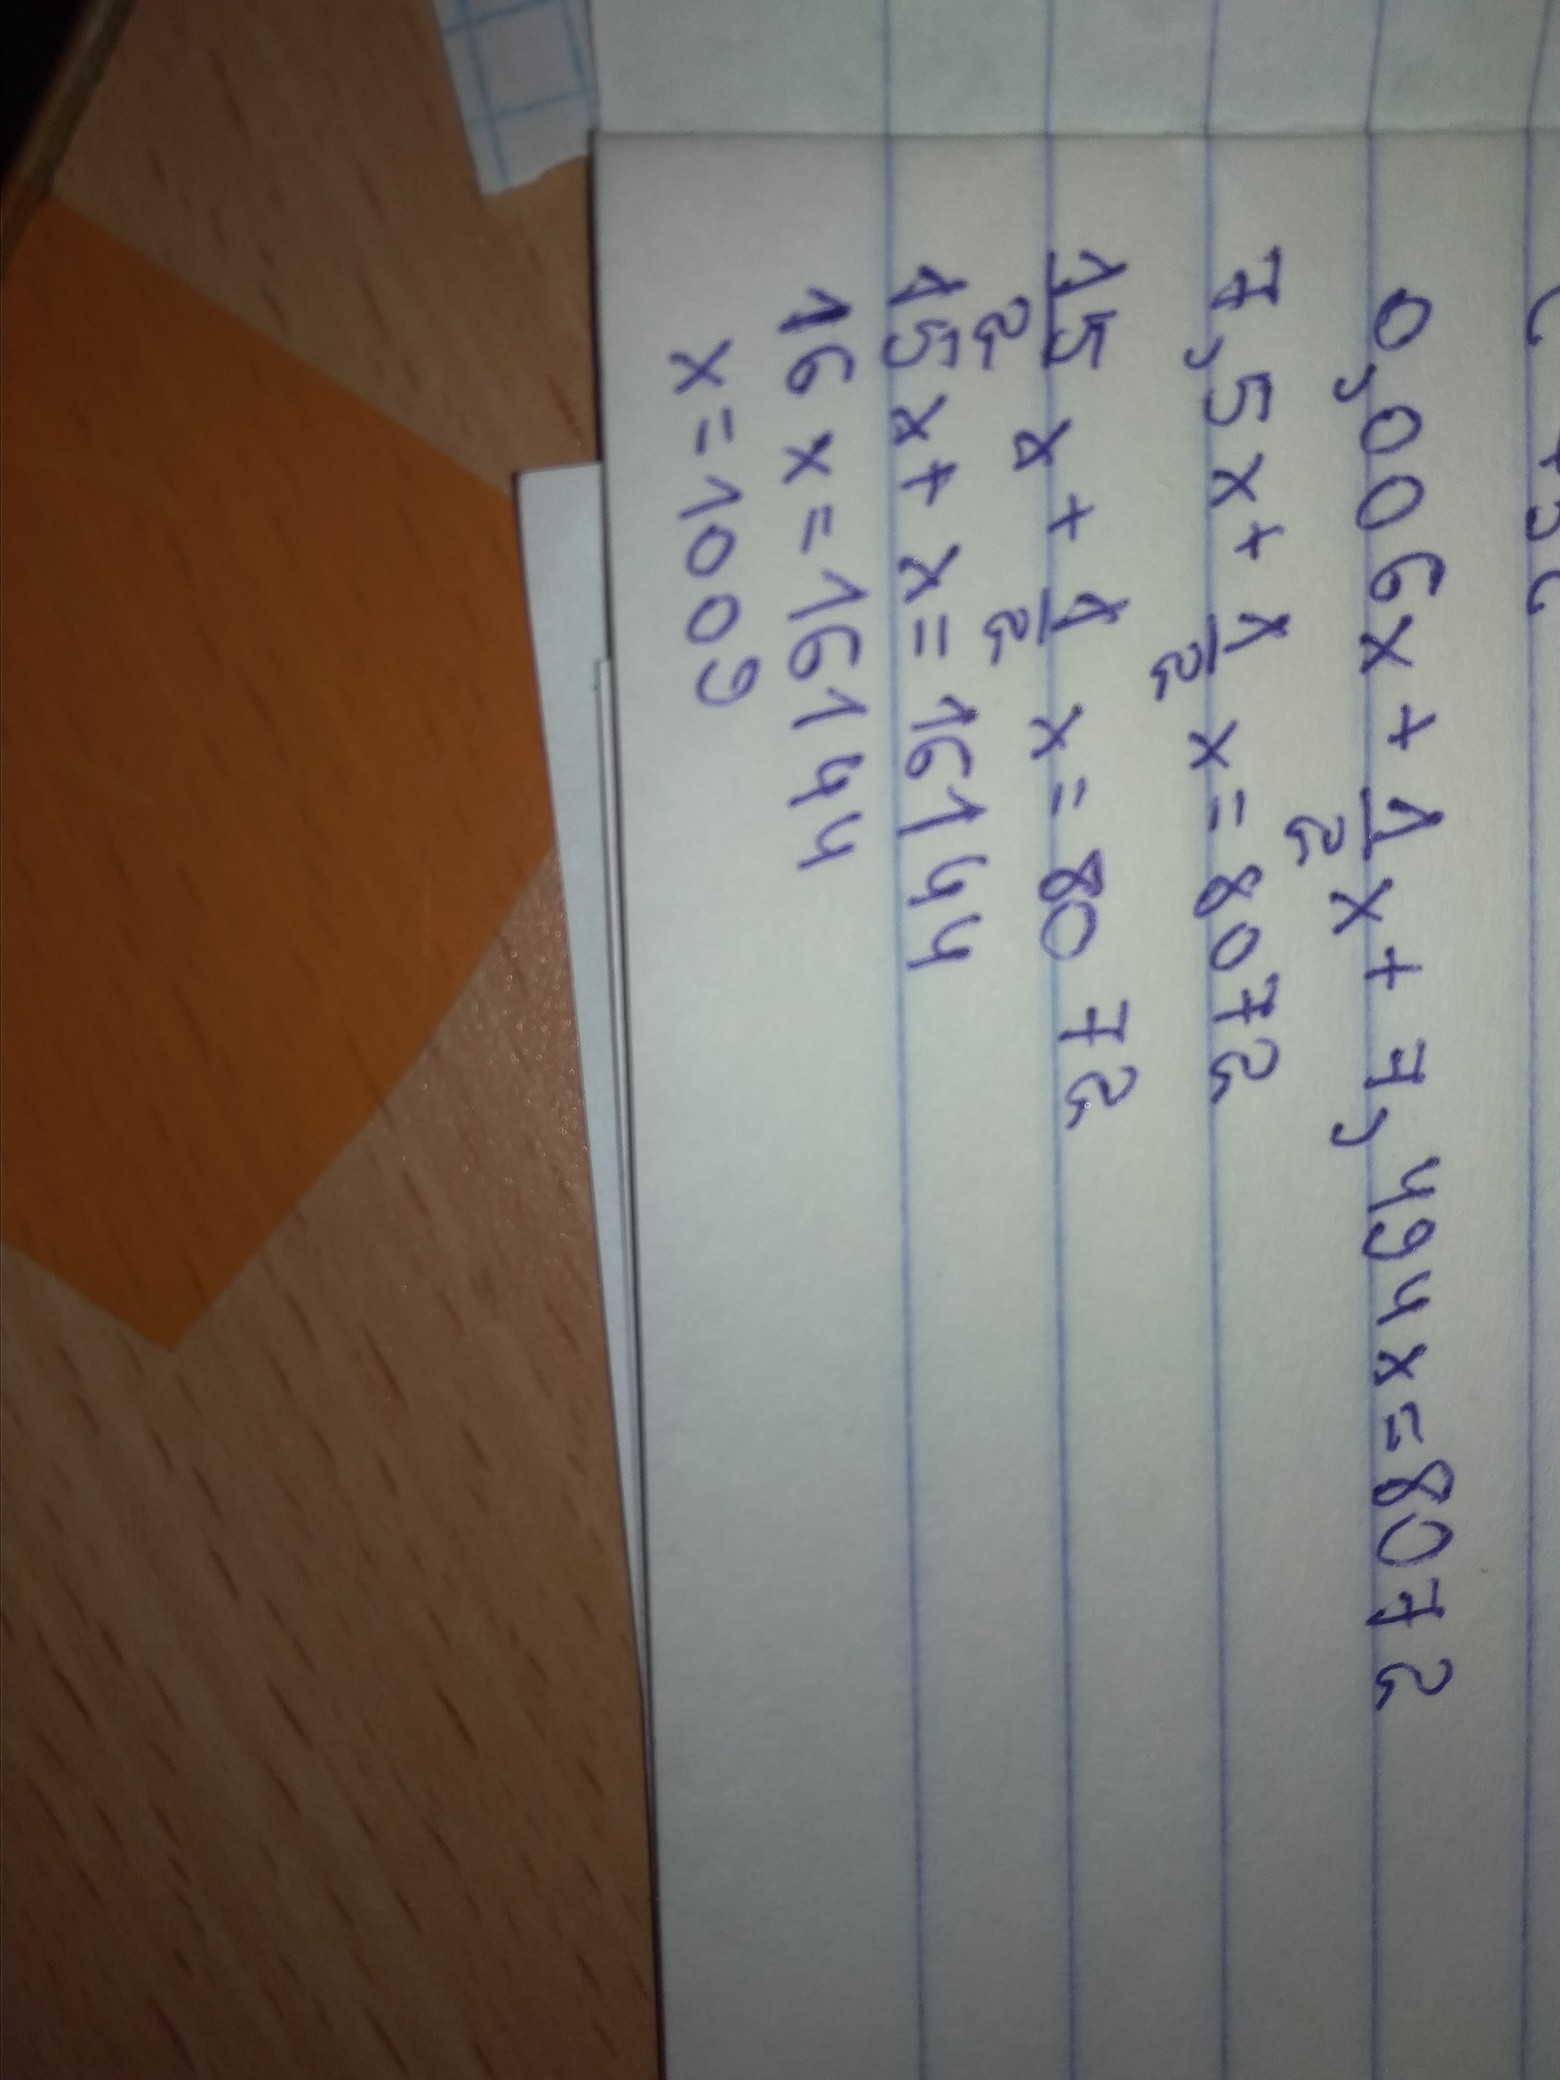 0,006x + 1/2 x + 7,494x = 8072
7,5x + 1/2 x = 8072
15/2 x + 1/2 x = 8072
15x + x = 16144
16x = 16144
x = 1009